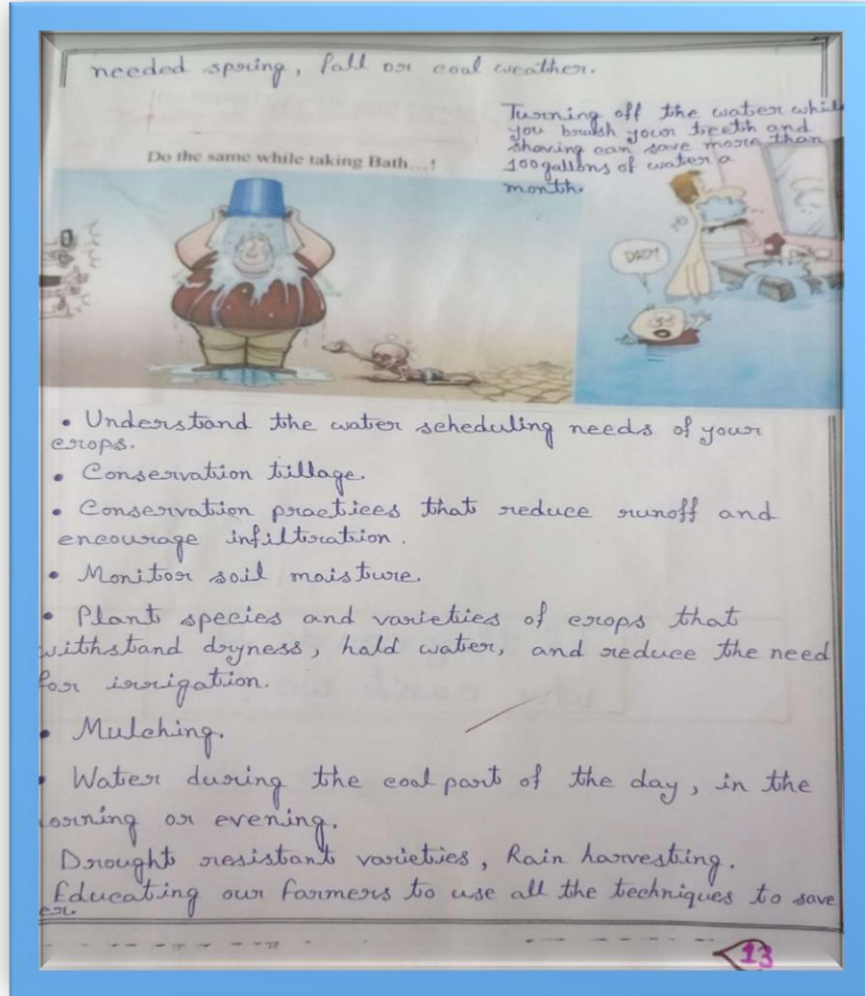 needed spring, fall or cool weather.
Turning off the water while
you brush your teeth and
shaving can save more than
100 gallons of water a
month.
Do the same while taking Bath...!
DAD!!
• Understand the water scheduling needs of your
crops.
• Conservation tillage.
• Conservation practices that reduce runoff and
encourage infiltration.
• Monitor soil moisture.
• Plant species and varieties of crops that
withstand dryness, hold water, and reduce the need
for irrigation.
• Mulching.
• Water during the cool part of the day, in the
orning or evening.
Drought resistant varieties, Rain harvesting.
Educating our farmers to use all the techniques to save
13